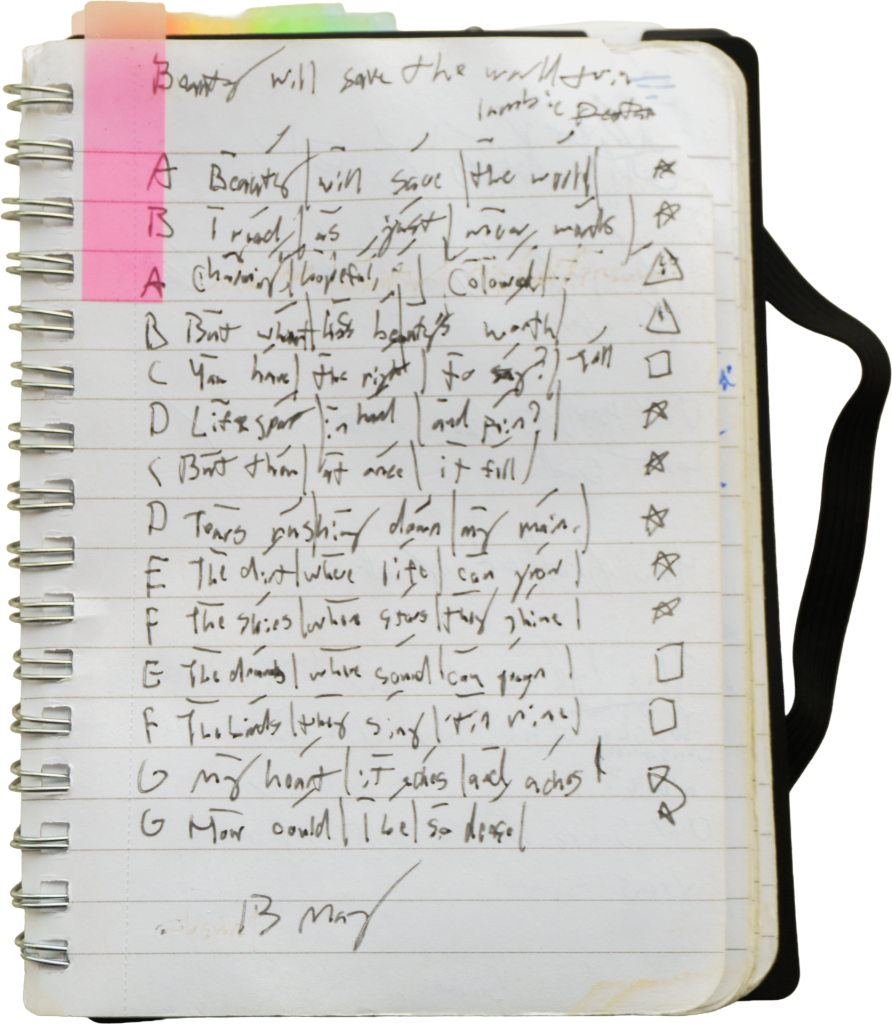 Beauty will save the world
Iambic
A Beauty will save the world
B I read as just mear words
A Charming, hopeful, Coloured
B But what has beauty's worth
C You have the right to say? Tell
D Life spat in and pain?
C But then at once it fell
D Tears pushing down my main.
E The dirt where life can grow
F The skies where stars they shine
E The where sound can
F The birds they sing nine
G My heart it aches and aches
G How could I be so dense
13 May